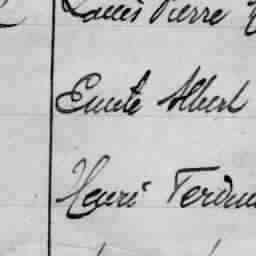 Louis Pierre
Emile Albert
Henri Ferdin